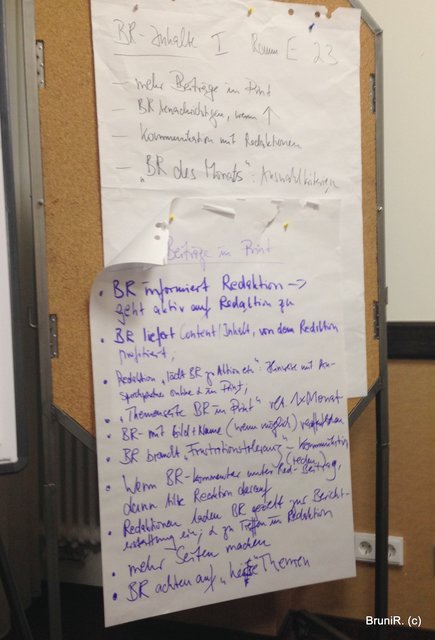 BR-Inhalte I Raum E 23
– mehr Beiträge im Print
– BR benachrichtigen, wenn ↑
– Kommunikation mit Redaktionen
– „BR des Monats": Auswahlkriterien
Beiträge im Print
• BR informiert Redaktion →
geht aktiv auf Redaktion zu
• BR liefert Content/Inhalt, von dem Redaktion
profitiert;
• Redaktion „lädt BR zu Aktion ein": Hinweise mit An-
sprache online & im Print;
• „Themenseite BR im Print" 1x Monat
• BR- mit Bild + Name (wenn möglich) veröffentlichen
• BR braucht „Frustrationstoleranz" – Kommunikation
(reden)
• Wenn BR-Kommentar unter Red-Beitrag,
dann Redaktion darauf
• Redaktionen laden BR gezielt zur Bericht-
erstattung ein, & zu Treffen in Redaktion
• mehr Seiten machen
• BR achten auf „heiße" Themen
BruniR. (c)